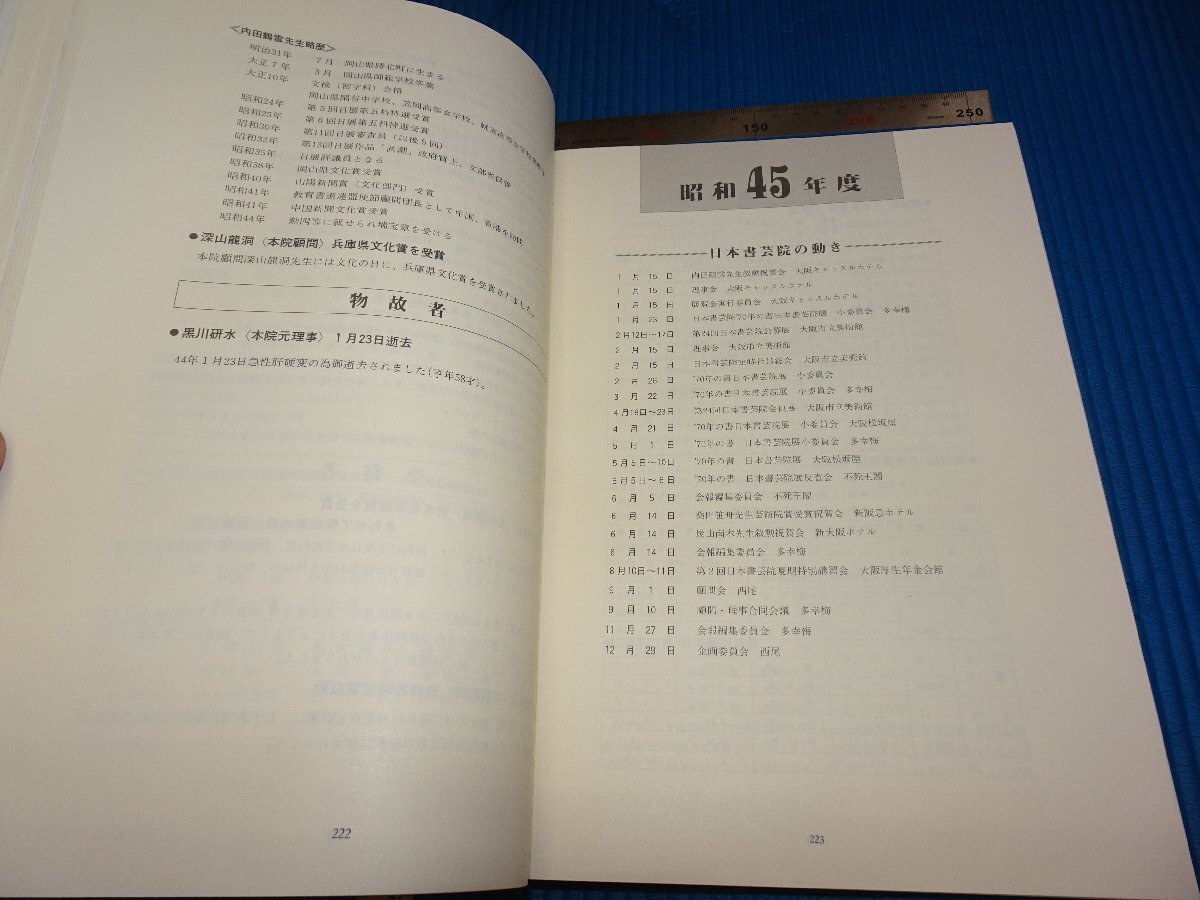 〈内田鶴雲先生略歴〉
明治31年 7月 岡山県勝北町に生まる
大正7年 3月 岡山県師範学校卒業
大正10年 文検（習字科）合格
岡山県閑谷中学校、笠岡高等女学校、就実高等女学校
昭和24年 第5回日展第五科特選受賞
昭和25年 第6回日展第五科特選受賞
昭和30年 第11回日展審査員（以後5回）
昭和32年 第13回日展作品「渦潮」政府買上、文部省保管
昭和35年 日展評議員となる
昭和38年 岡山県文化賞受賞
昭和40年 山陽新聞賞（文化部門）受賞
昭和41年 教育書道連盟使節顧問団長として中国、香港を訪問
昭和41年 中国新聞文化賞受賞
昭和44年 勲四等に叙せられ瑞宝章を受ける
●深山龍洞〈本院顧問〉兵庫県文化賞を受賞
本院顧問深山龍洞先生には文化の日に、兵庫県文化賞を受賞されました。
物故者
●黒川研水〈本院元理事〉1月23日逝去
44年1月23日急性肝硬変の為御逝去されました(享年58才)。
222
150
200
250
昭和45年度
日本書芸院の動き
1月15日 内田鶴雲先生叙勲祝賀会 大阪キャッスルホテル
1月15日 理事会 大阪キャッスルホテル
1月15日 展覧会実行委員会 大阪キャッスルホテル
1月23日 日本書芸院'70年の書日本書芸院展 小委員会 多幸梅
2月12日〜17日 第24回日本書芸院公募展 大阪市立美術館
2月15日 理事会 大阪市立美術館
2月15日 日本書芸院定時社員総会 大阪市立美術館
2月26日 '70年の書日本書芸院展 小委員会
3月22日 '70年の書日本書芸院展 小委員会 多幸梅
4月18日〜23日 第24回日本書芸院役員展 大阪市立美術館
4月21日 '70年の書日本書芸院展 小委員会 大阪松坂屋
5月1日 '70年の書 日本書芸院展小委員会 多幸梅
5月5日〜10日 '70年の書 日本書芸院展 大阪松坂屋
6月5日〜6日 '70年の書 日本書芸院展反省会 不死王閣
6月5日 会報編集委員会 不死王閣
6月14日 桑田笹舟先生芸術院賞受賞祝賀会 新阪急ホテル
6月14日 炭山南木先生叙勲祝賀会 新大阪ホテル
6月14日 会報編集委員会 多幸梅
8月10日〜11日 第2回日本書芸院夏期特別講習会 大阪厚生年金会館
9月1日 顧問会 西尾
9月10日 顧問・理事合同会議 多幸梅
11月27日 会報編集委員会 多幸梅
12月29日 企画委員会 西尾
223